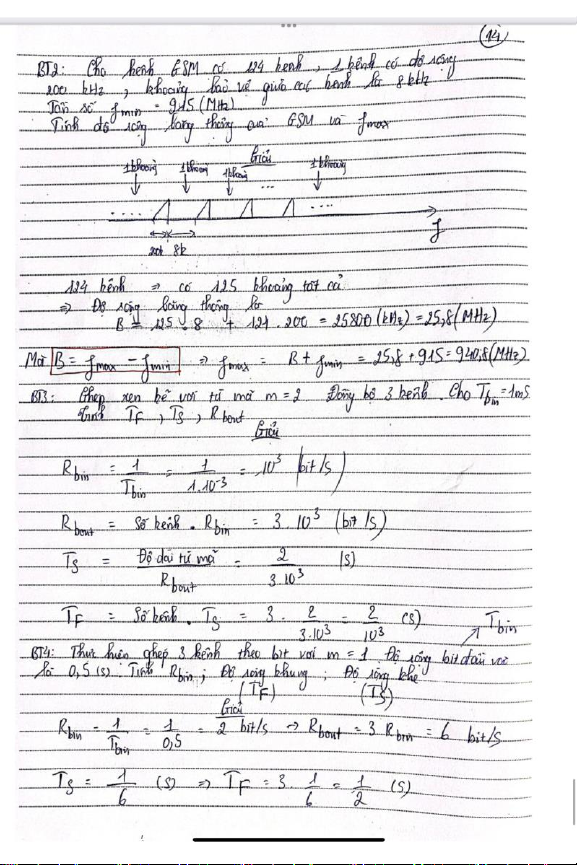 (14)
BT2: Cho kênh GSM có 124 kênh, 1 kênh có độ rộng
200 kHz, khoảng bảo vệ giữa các kênh là 8kHz
Tần số fmin = 915 (MHz)
Tính độ rộng băng thông của GSM và fmax
Giải
1 khoảng 1 khoảng 1 khoảng ... 1 khoảng
.... ....
200k 8k f
124 kênh => có 125 khoảng tất cả
=> Độ rộng băng thông là
B = 125.8 + 124.200 = 25800 (kHz) = 25,8 (MHz)
Mà B = fmax - fmin => fmax = B + fmin = 25,8 + 915 = 940,8 (MHz)
BT3: Ghép xen kẽ với từ mã m = 2 Đồng bộ 3 kênh. Cho Tbin = 1ms
Tính TF, TS, Rbout
Giải
Rbin = 1/Tbin = 1/1.10^-3 = 10^3 (bit/s)
Rbout = Số kênh . Rbin = 3.10^3 (bit/s)
TS = Độ dài từ mã/Rbout = 2/3.10^3 (s)
TF = Số kênh . TS = 3 . 2/3.10^3 = 2/10^3 (s) Tbin
BT4: Thực hiện ghép 3 kênh theo bit với m = 1. Độ rộng bit đầu vào
là 0,5 (s). Tính Rbin; Độ rộng khung; Độ rộng khe
(TF) (TS)
Giải
Rbin = 1/Tbin = 1/0,5 = 2 bit/s => Rbout = 3 Rbin = 6 bit/s
TS = 1/6 (s) => TF = 3 . 1/6 = 1/2 (s)